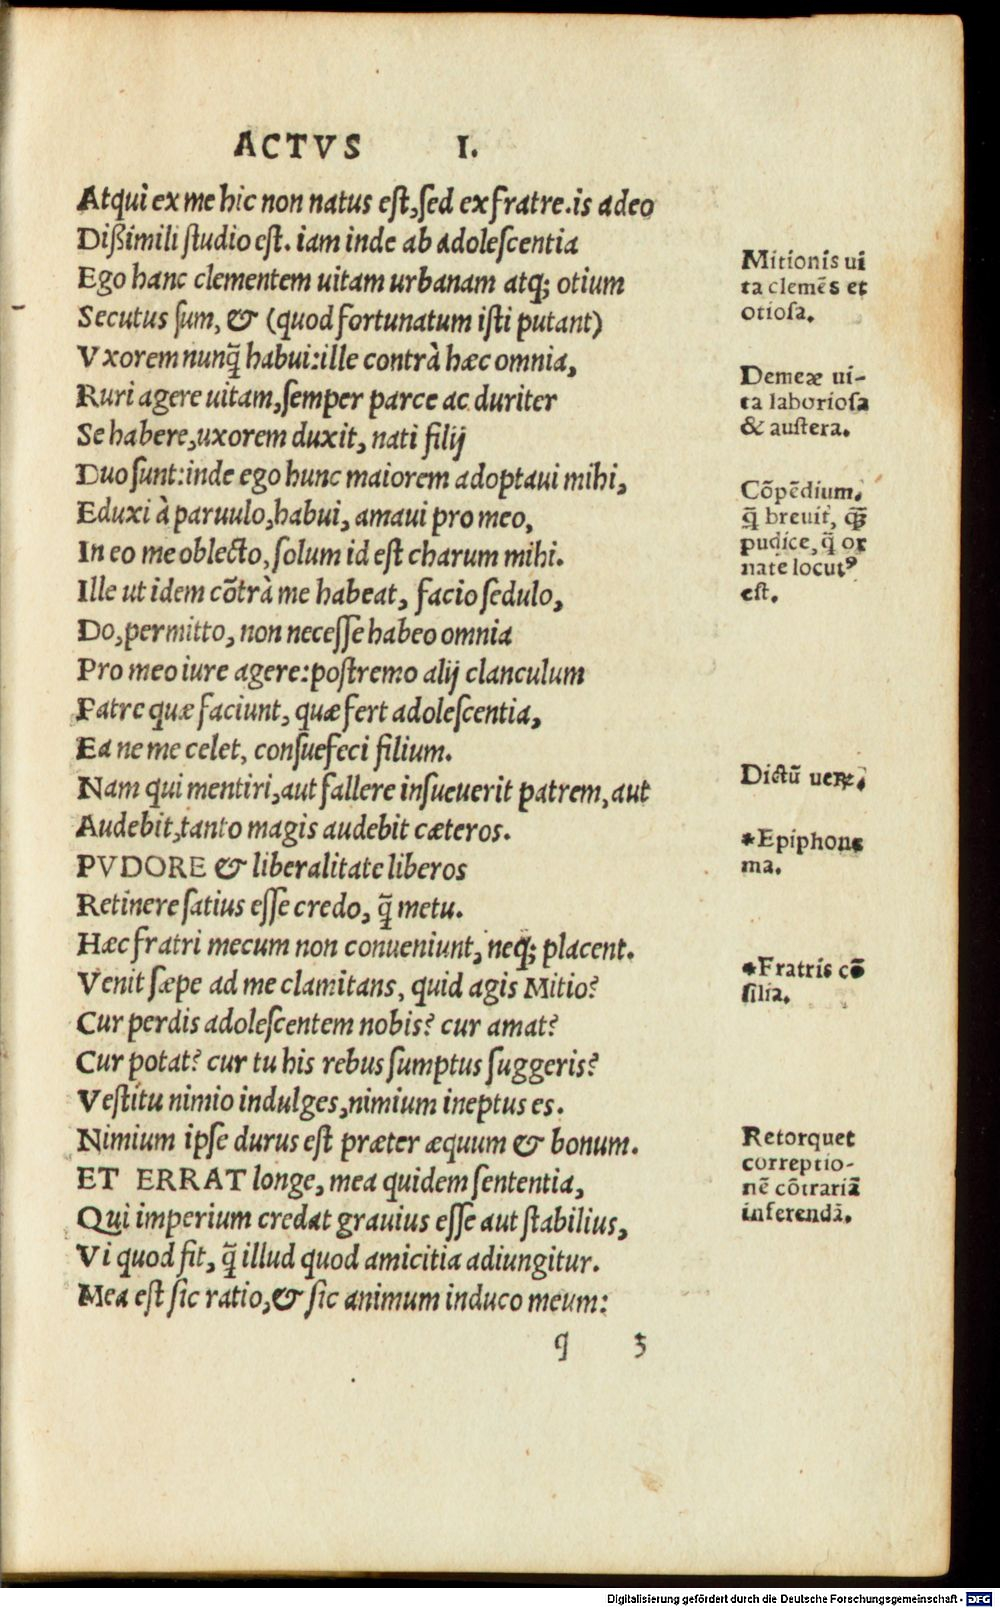 ACTVS I.
Atqui ex me hic non natus est, sed ex fratre. is adeo
Dißimili studio est. iam inde ab adolescentia
Ego hanc clementem uitam urbanam atq; otium
Secutus sum, & (quod fortunatum isti putant)
Vxorem nunq̃ habui: ille contrà hæc omnia,
Ruri agere uitam, semper parce ac duriter
Se habere, uxorem duxit, nati filij
Duo sunt: inde ego hunc maiorem adoptaui mihi,
Eduxi à paruulo, habui, amaui pro meo,
In eo me oblecto, solum id est charum mihi.
Ille ut idem cõtrà me habeat, facio sedulo,
Do, permitto, non necesse habeo omnia
Pro meo iure agere: postremo alij clanculum
Patre quæ faciunt, quæ fert adolescentia,
Ea ne me celet, consuefeci filium.
Nam qui mentiri, aut fallere insueuerit patrem, aut
Audebit, tanto magis audebit cæteros.
PVDORE & liberalitate liberos
Retinere satius esse credo, q̃ metu.
Hæc fratri mecum non conueniunt, neq; placent.
Venit sæpe ad me clamitans, quid agis Mitio?
Cur perdis adolescentem nobis? cur amat?
Cur potat? cur tu his rebus sumptus suggeris?
Vestitu nimio indulges, nimium ineptus es.
Nimium ipse durus est præter æquum & bonum.
ET ERRAT longe, mea quidem sententia,
Qui imperium credat grauius esse aut stabilius,
Vi quod fit, q̃ illud quod amicitia adiungitur.
Mea est sic ratio, & sic animum induco meum:
q 3
Mitionis ui
ta clemẽs et
otiosa.
Demeæ ui-
ta laboriosa
& austera.
Cõpẽdium.
q̃ breuit, q̃
pudice, q̃ or
nate locutꝰ
est.
Dictũ uere.
*Epiphone
ma.
*Fratris cõ
silia.
Retorquet
correptio-
nẽ cõtrariã
inferendã.
Digitalisierung gefördert durch die Deutsche Forschungsgemeinschaft - DFG